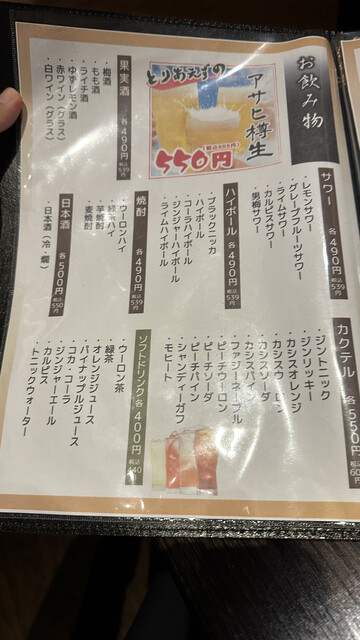 お飲み物
とりあえずの
アサヒ樽生
550円
サワー 各490円 税込539円
・レモンサワー
・グレープフルーツサワー
・ライムサワー
・カルピスサワー
・男梅サワー
ハイボール 各490円 税込539円
・ブラックニッカ
・ハイボール
・コーラハイボール
・ジンジャーハイボール
・ライムハイボール
カクテル 各550円
・ジントニック
・ジンリッキー
・カシスオレンジ
・カシスウーロン
・カシスソーダ
・カシスパイン
・ファジーネーブル
・ピーチウーロン
・ピーチソーダ
・ピーチパイン
・シャンディーガフ
・モヒート
果実酒 各490円 税込539円
・梅酒
・もも酒
・ライチ酒
・ゆずレモン酒
・赤ワイン（グラス）
・白ワイン（グラス）
焼酎 各490円 税込539円
・ウーロンハイ
・緑茶ハイ
・芋焼酎
・麦焼酎
日本酒 各500円 税込550円
・日本酒（冷・燗）
ソフトドリンク 各400円 税込440
・ウーロン茶
・緑茶
・オレンジジュース
・パイナップルジュース
・コカ・コーラ
・ジンジャーエール
・カルピス
・トニックウォーター